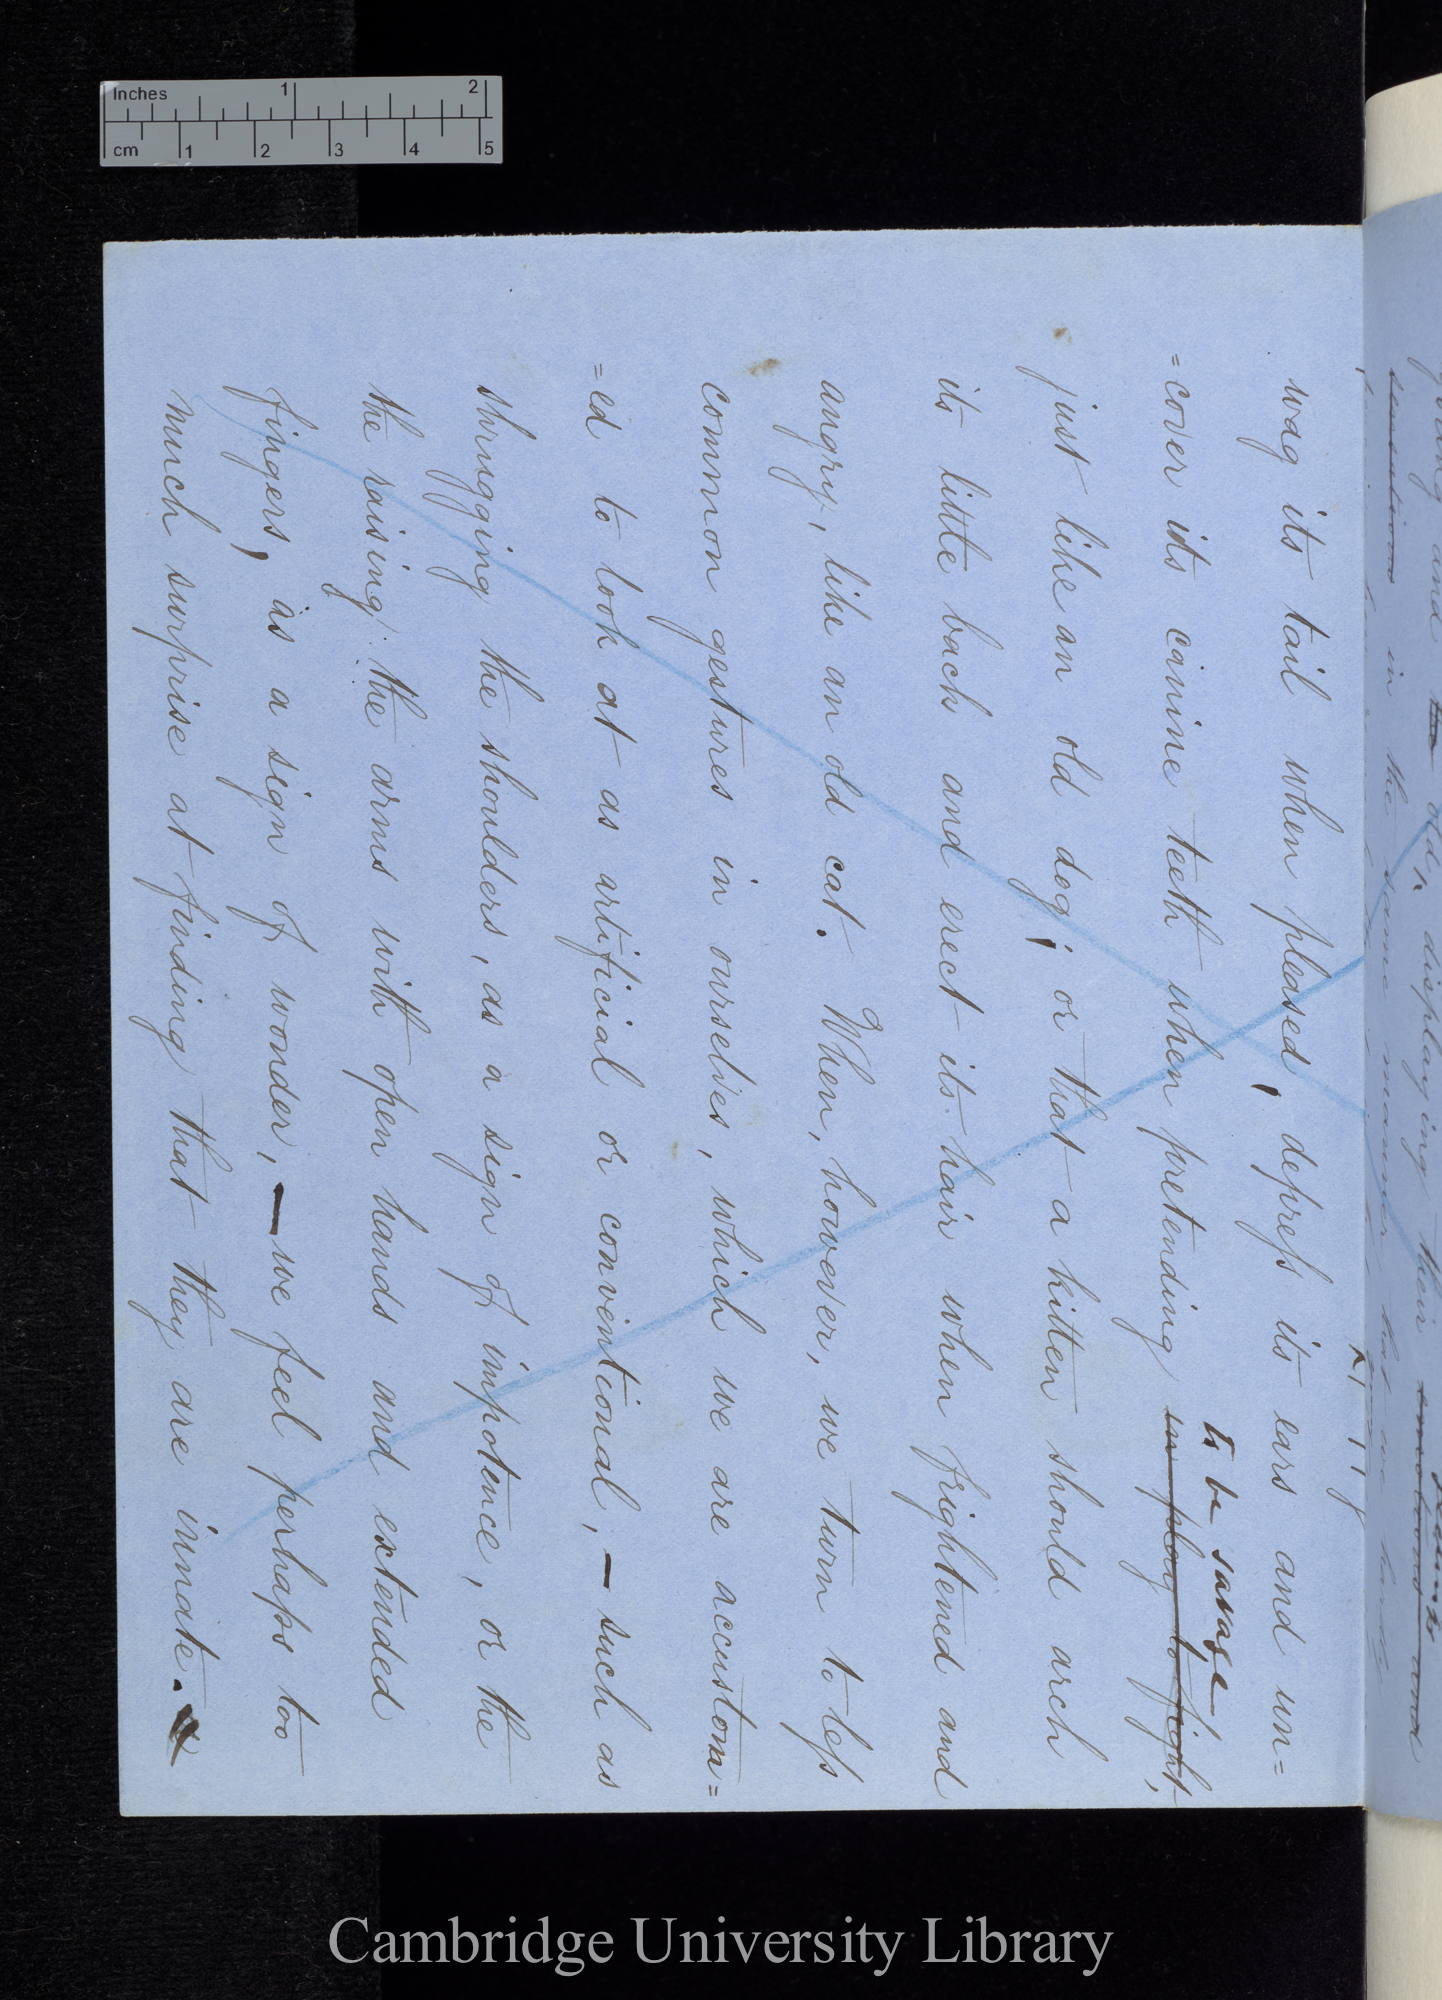 wag its tail when pleased, depress its ears and un=
to be savage
=cover its canine teeth when pretending in play to fight,
just like an old dog; or that a kitten should arch
its little back and erect its hair when frightened and
angry, like an old cat. When, however, we turn to less
common gestures in ourselves, which we are accustom=
=ed to look at as artificial or conventional, — such as
shrugging the shoulders, as a sign of impotence, or the
the raising the arms with open hands and extended
fingers, as a sign of wonder, — we feel perhaps too
much surprise at finding that they are innate.
old, displaying their
in the same manner,
Inches 1 2
cm 1 2 3 4 5
Cambridge University Library